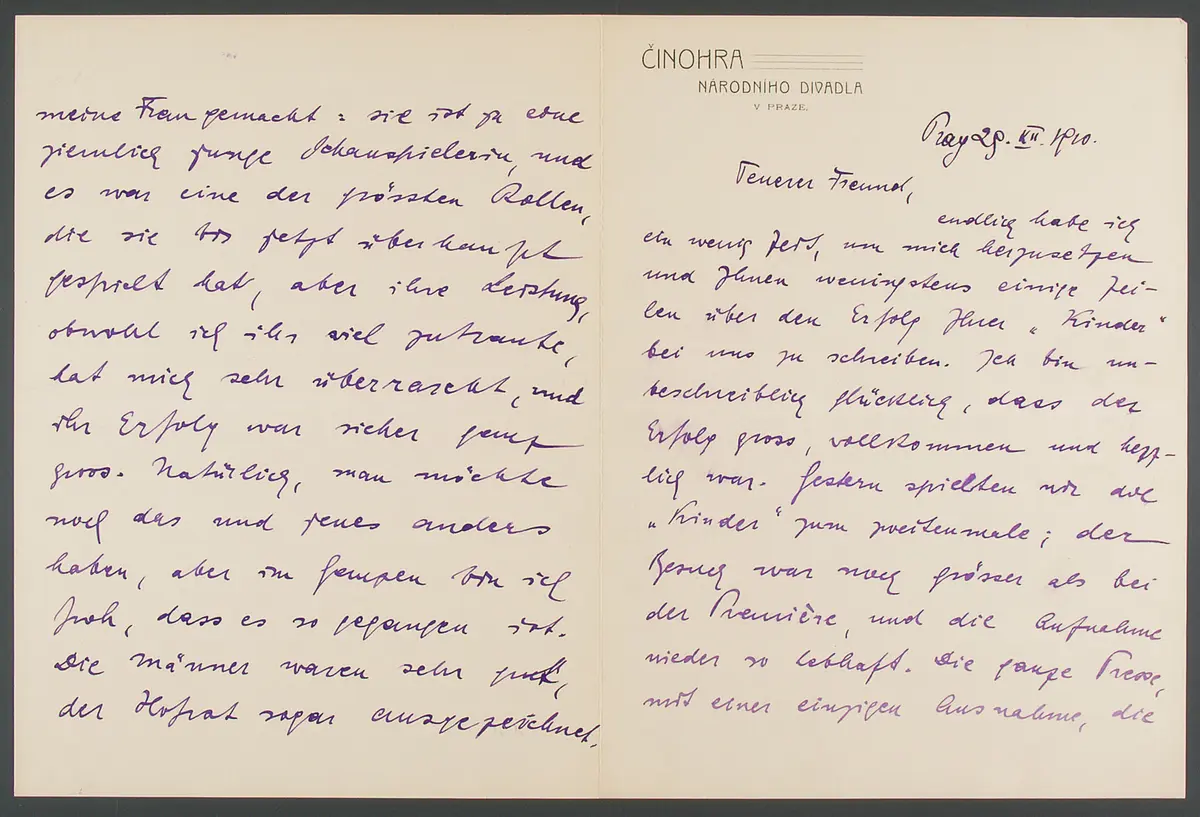 ČINOHRA
NÁRODNÍHO DIVADLA
V PRAZE.
Prag 29. XII. 1910.
Teuerer Freund,
endlich habe ich
ein wenig Zeit, um mich herzusetzen
und Ihnen weningstens einige Zei-
len über den Erfolg Ihrer „Kinder“
bei uns zu schreiben. Ich bin un-
beschreiblich glücklich, dass der
Erfolg gross, vollkommen und herz-
lich war. Gestern spielten wir die
„Kinder“ zum zweitenmale; der
Besuch war noch grösser als bei
der Première, und die Aufnahme
wieder so lebhaft. Die ganze Presse,
mit einer einzigen Ausnahme, die
meine Frau gemacht: sie ist ja eine
ziemlich junge Schauspielerin, und
es war eine der grössten Rollen,
die sie bis jetzt überhaupt
gespielt hat, aber ihre Leistung,
obwohl ich ihr viel zutraute,
hat mich sehr überrascht, und
ihr Erfolg war sicher ganz
gross. Natürlich, man möchte
noch das und jenes anders
haben, aber im Ganzen bin ich
froh, dass es so gegangen ist.
Die Männer waren sehr gut,
der Hofrat sogar ausgezeichnet.